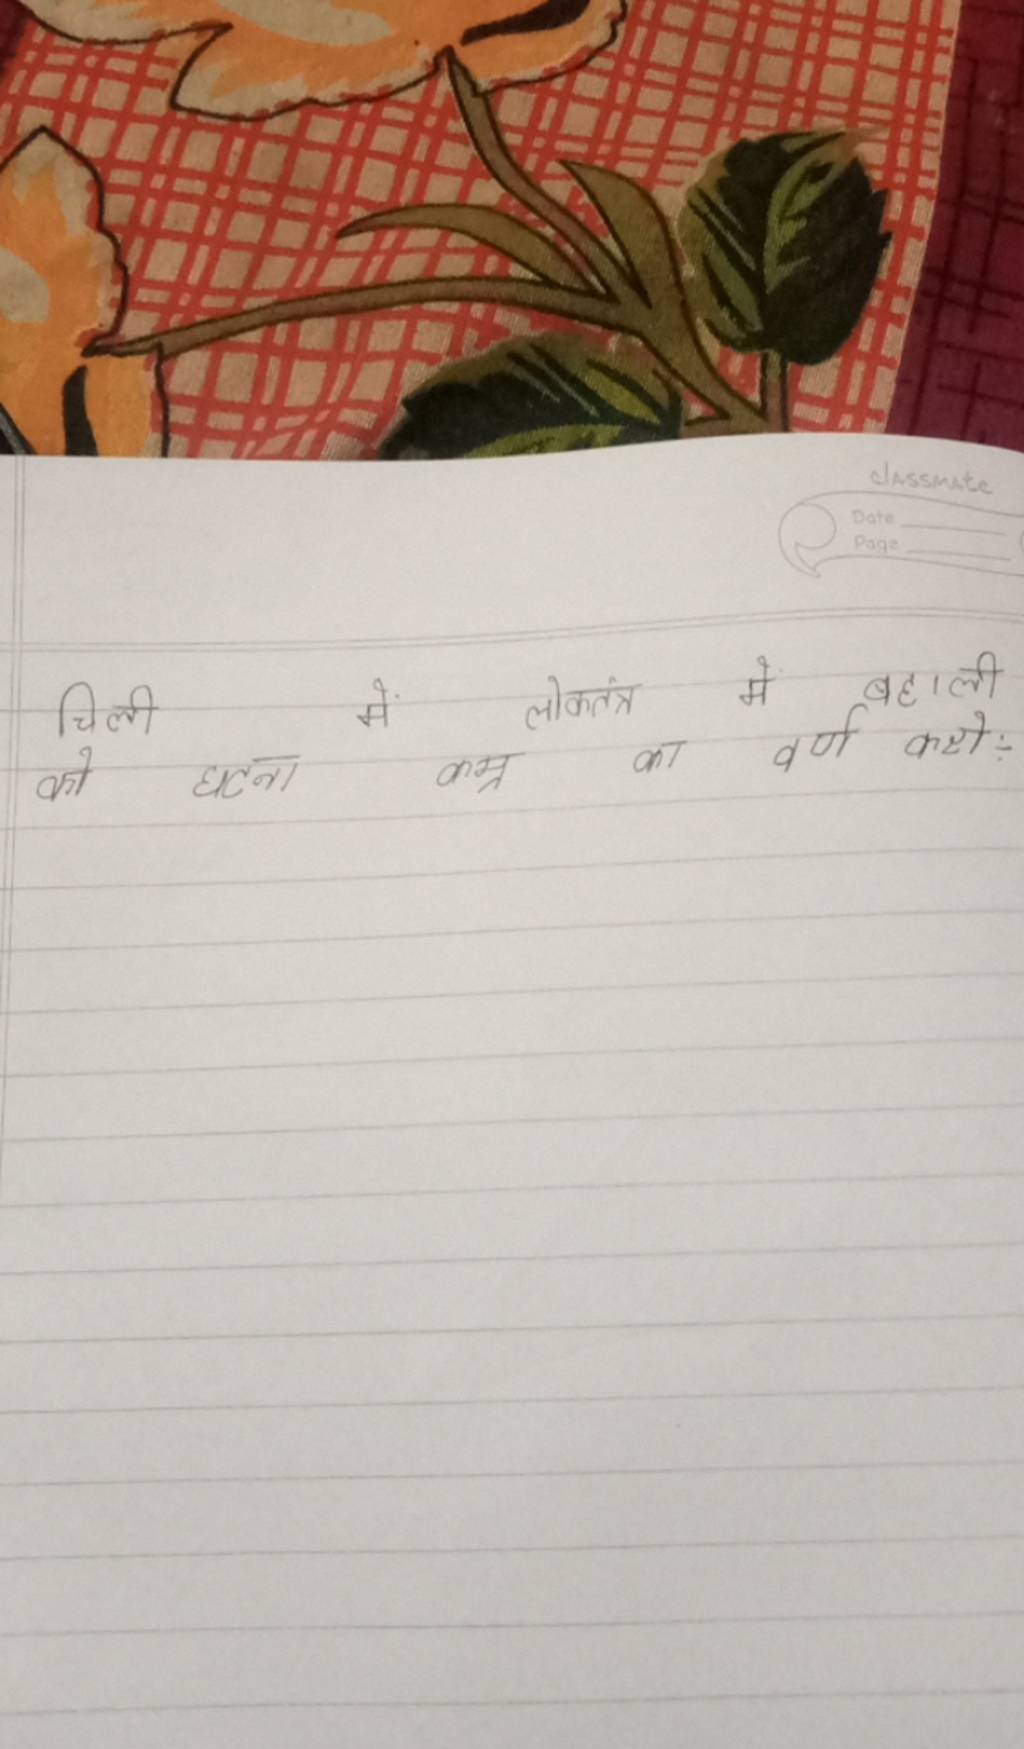 classmate
Date
Page
चिली में लोकतंत्र में बहाली
को घटना कम्र का वर्ण करो÷